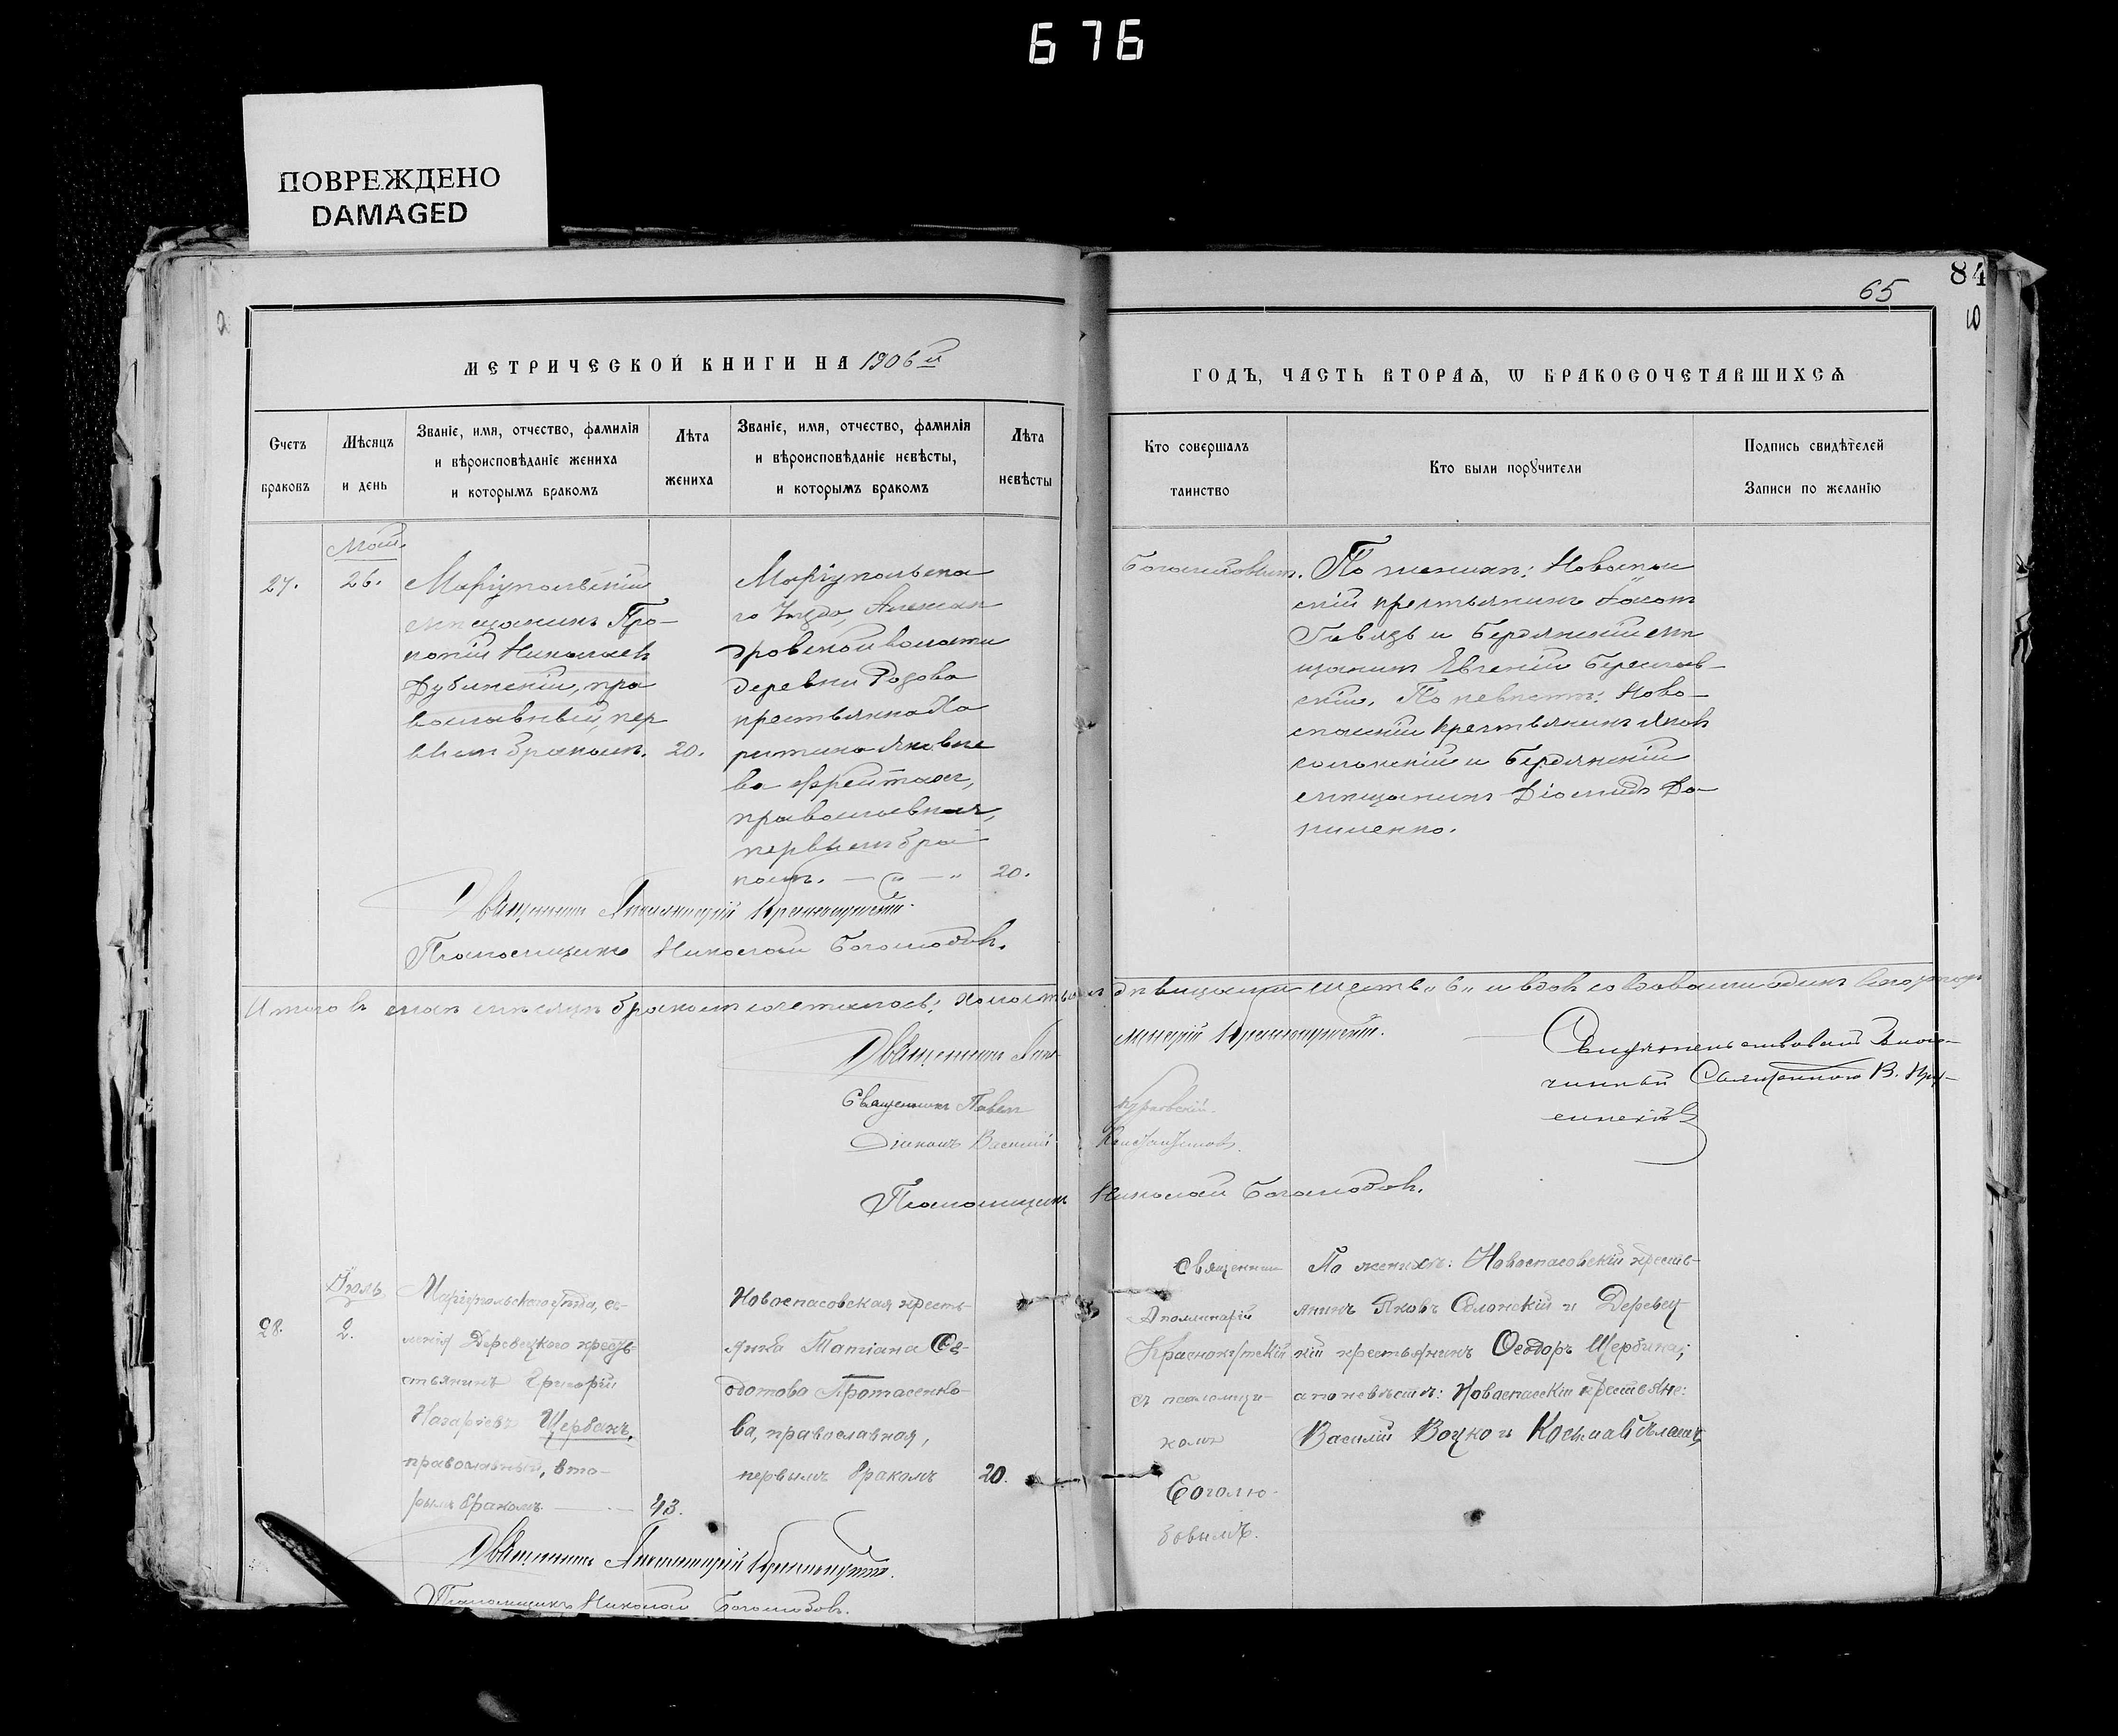 676
ПОВРЕЖДЕНО
DAMAGED
84
65
2
10
МЕТРИЧЕСКОЙ КНИГИ НА 1906й
ГОДЪ, ЧАСТЬ ВТОРАЯ, Ѡ БРАКОСОЧЕТАВШИХСЯ
Счетъ браковъ
Мѣсяцъ и день
Званіе, имя, отчество, фамилія
и вѣроисповѣданіе жениха
и которымъ бракомъ
Лѣта жениха
Званіе, имя, отчество, фамилія
и вѣроисповѣданіе невѣсты,
и которымъ бракомъ
Лѣта невѣсты
Кто совершалъ таинство
Кто были порꙋчители
Подпись свидѣтелей
Записи по желанію
27.
Май.
26.
Маріупольскій
мѣщанинъ Про-
копій Николаевъ
Дубинскій, пра
вославный, пер
вымъ бракомъ. 20.
Маріупольска
го Уѣзда, Александ
ровской волости
деревни
крестьянка Ха
ритина Яковле
ва Фрейтахъ,
православная,
первымъ бра
комъ. — „ — „ 20.
Боголюбовым.
По женихѣ: Новоспас
скій крестьянинъ
и Бердянскій мѣ
щанинъ Евгеній Береслав-
скій. По невѣстѣ: Ново-
спасскій крестьянинъ Яковъ
Солонскій и Бердянскій
мѣщанинъ Діомидъ До-
ниленко.
Священникъ Аполлинарій Краснокутскій.
Псаломщикъ Николай Боголюбовъ.
Итого въ маѣ мѣсяцѣ бракомъ сочеталось: холостыхъ съ дѣвицами шесть „6„ и вдов со вдовами одинъ
Священникъ Апол-
линарій Краснокутскій.
Священникъ Павелъ
Діаконъ Василій Константиновъ.
Псаломщикъ Николай Боголюбовъ.
Свидѣтельствовалъ Благо-
чинный Священникъ В.
28.
Іюль
2.
Маріупольскаго уѣзда, се-
ленія Деревецкого кресть-
стьянинъ Григорій
Назаріевъ Щербакъ,
православный, вто-
рымъ бракомъ — 43.
Новоспасовская кресть-
янка Татіана Ѳе-
одотова Протасенко-
ва, православная,
первымъ бракомъ 20.
Священникъ
Аполлинарій
Краснокутскій
съ псаломщи-
комъ
Боголю-
бовымъ.
По женихѣ: Новоспасовскій кресть-
янинъ Яковъ Солонскій и Деревец-
кій крестьянинъ Ѳеодоръ Щербина;
а по невѣстѣ: Новоспасскіи крестьяне:
Василій Воцко и Косма
Священникъ Аполлинарій Краснокутскій.
Псаломщикъ Николай Боголюбовъ.